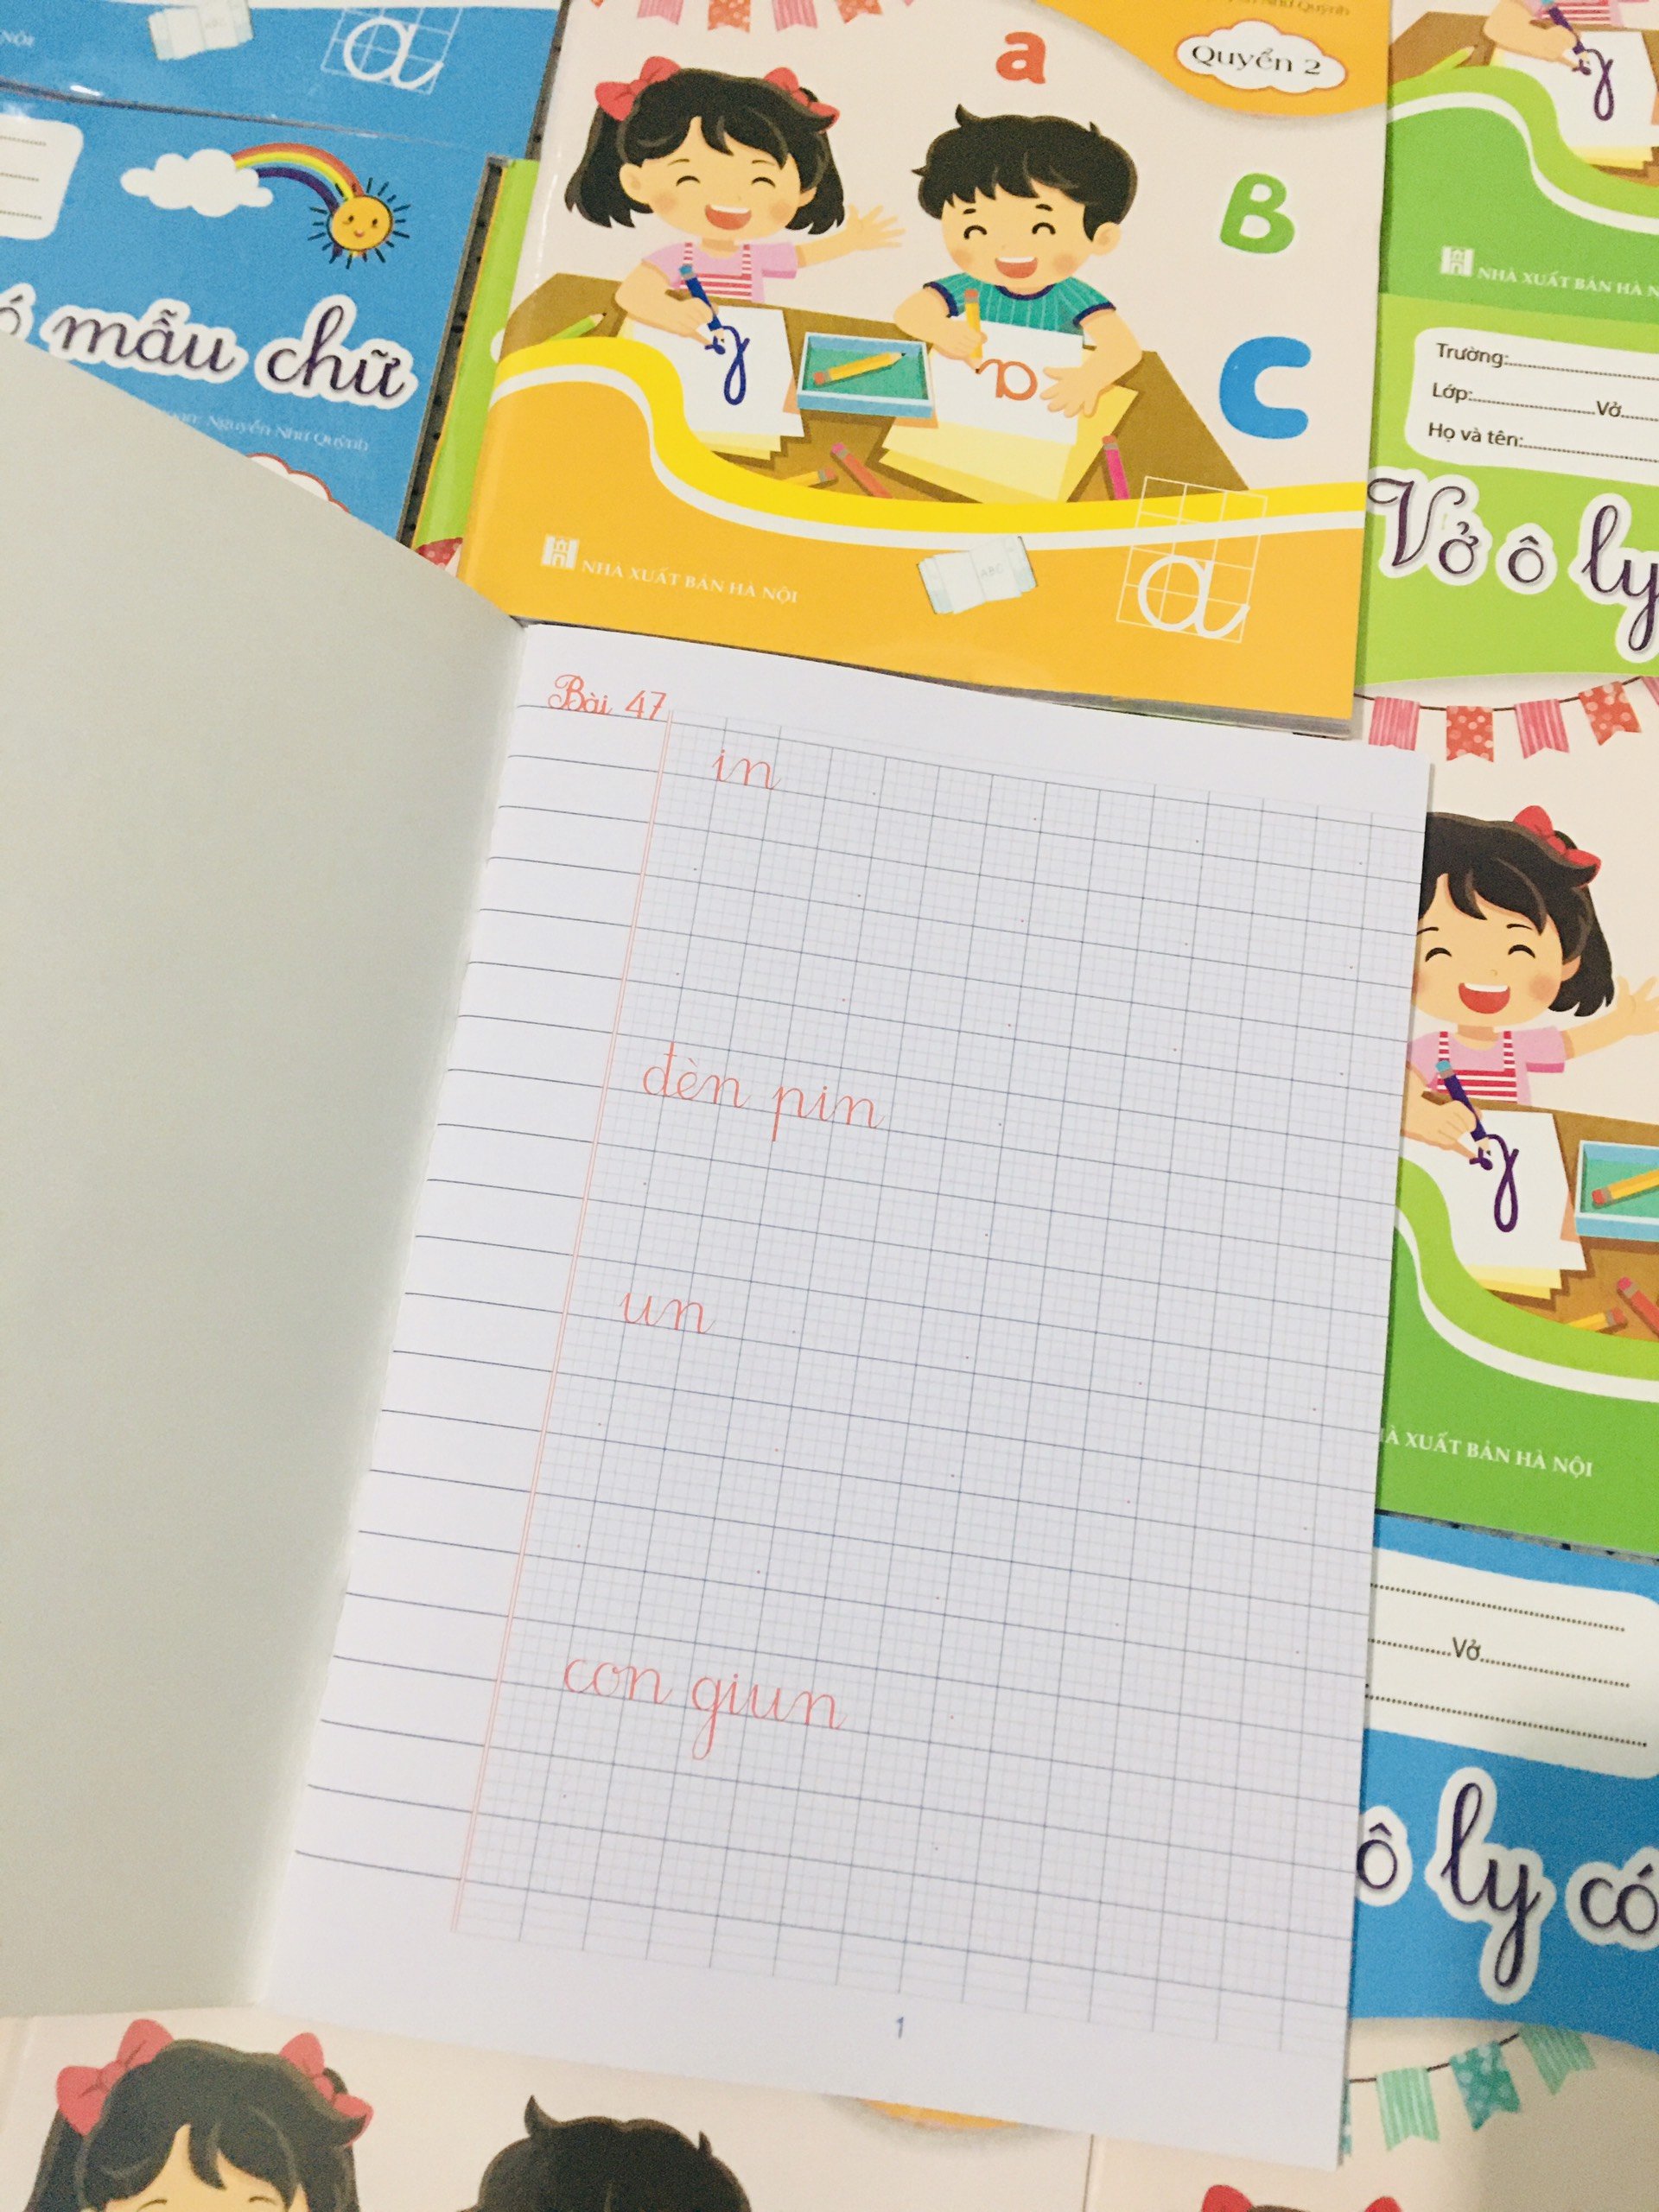 a
Quyển 2
a
B
C
mẫu chữ
Nguyễn Như Quỳnh
ABC
a
NHÀ XUẤT BẢN HÀ NỘI
NHÀ XUẤT BẢN HÀ
Trường:
Lớp: Vở
Họ và tên:
Vở ô ly
Bài 47
in
đèn pin
un
con giun
1
XUẤT BẢN HÀ NỘI
Vở
ô ly có